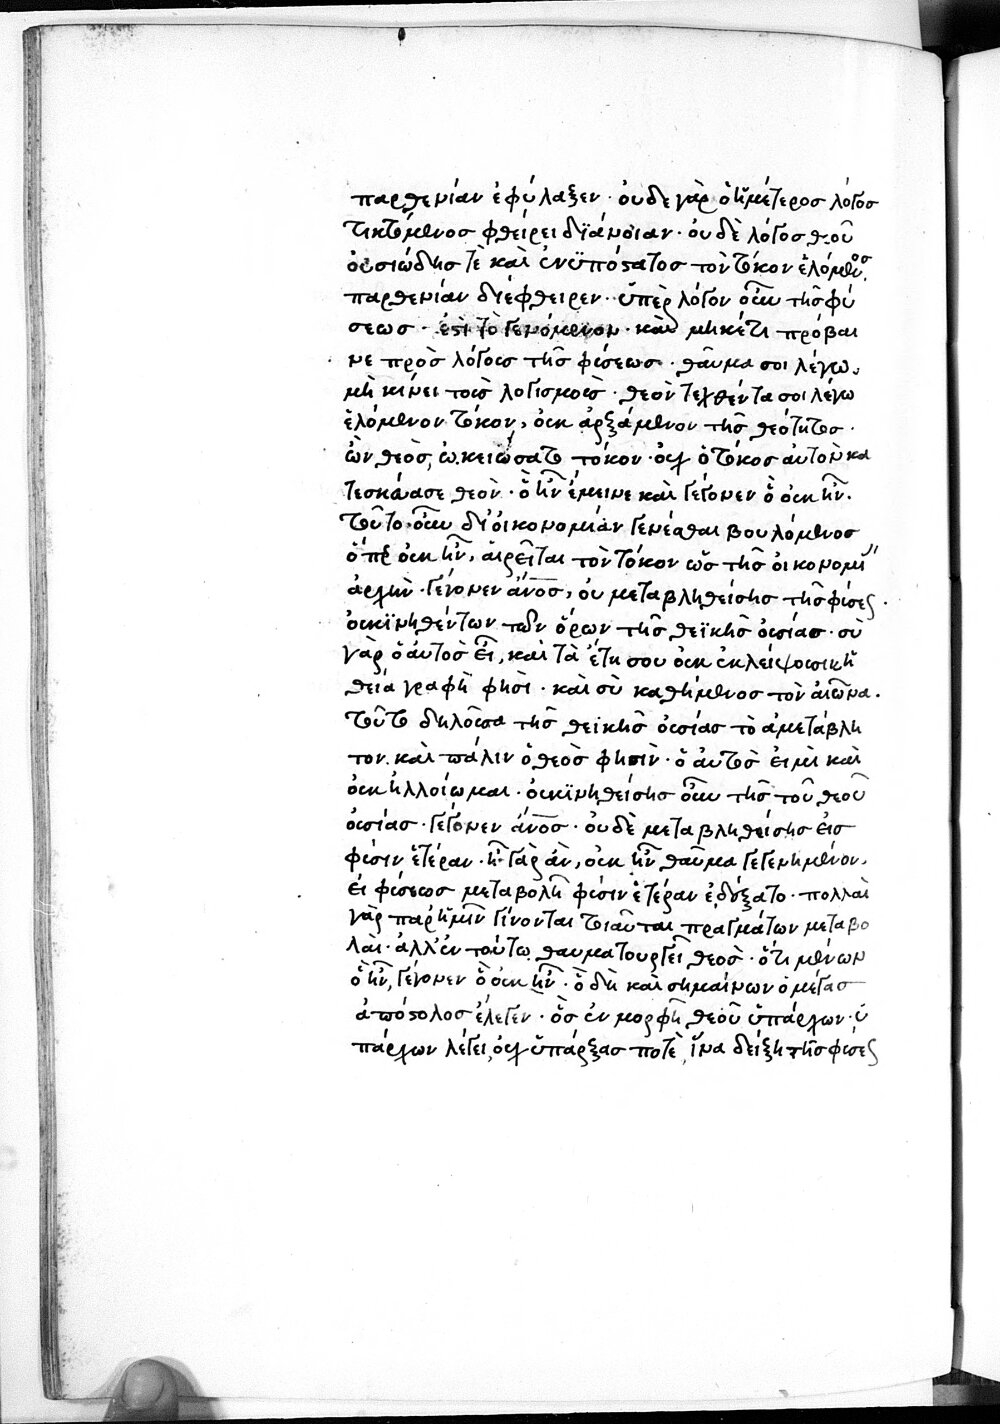 παρθενίαν ἐφύλαξεν · οὐδε γὰρ ὁ ἡμέτερος λόγος
τικτόμενος φθείρει διάνοιαν · οὐδὲ λόγος θεοῦ
οὐσιώδης τὲ καὶ ἐνϋπόστατος τὸν τόκον ἑλόμενος,
παρθενίαν διέφθειρεν · ὑπὲρ λόγον οὖν τῆς φύ
σεως · ἐστὶ τὸ γενόμενον · καὶ μηκέτι πρόβαι
νε πρὸς λόγους τῆς φύσεως · θαῦμα σοι λέγω,
μὴ κίνει τοὺς λογισμοὺς · θεὸν τεχθέντα σοι λέγω
ἑλόμενον τόκον, οὐκ ἀρξάμενον τῆς θεότητος ·
ὢν θεὸς, ᾠκειώσατο τόκον · οὐχ ὁ τόκος αὐτὸν κα
τεσκεύασε θεὸν · ὃ ἦν ἔμεινε καὶ γέγονεν ὃ οὐκ ἦν.
τοῦτο οὖν δι' οἰκονομίαν γενέσθαι βουλόμενος
ὅπερ οὐκ ἦν, αἱρεῖται τὸν τόκον ὡς τῆς οἰκονομί
ἀρχὴν · γέγονεν ἄνος, οὐ μεταβληθείσης τῆς φύσεως ·
οὐ κϊνηθέντων τῶν ὅρων τῆς θεϊκῆς οὐσίας · σὺ
γὰρ ὁ αὐτὸς εἶ, καὶ τὰ ἔτη σου οὐκ ἐκλείψουσιν ἡ
θεία γραφὴ φησὶ · καὶ σὺ καθήμενος τὸν αἰῶνα.
τοῦτο δηλοῦσα τῆς θεϊκῆς οὐσίας τὸ ἀμετάβλη
τον. καὶ πάλιν ὁ θεὸς φησὶν · ὁ αὐτὸς εἰμὶ καὶ
οὐκ ἠλλοίωμαι · οὐ κϊνηθείσης οὖν τῆς τοῦ θεοῦ
οὐσίας · γέγονεν ἄνος · οὐδὲ μεταβληθείσης εἰς
φύσιν ἑτέραν · ἦ γὰρ ἂν, οὐκ ἦν θαῦμα γεγενημένον.
εἰ φύσεως μεταβολῆ φύσιν ἑτέραν ἐδέξατο · πολλαὶ
γὰρ παρ' ἡμῖν γίνονται τοιαῦται πραγμάτων μεταβο
λαὶ · ἀλλ' ἐν τούτω θαυματουργεῖ θεὸς · ὅτι μένων
ὃ ἦν, γέγονεν ὃ οὐκ ἦν · ὃ δὴ καὶ σημαίνων ὁ μέγας
ἀπόστολος ἔλεγεν · ὃς ἐν μορφῆ θεοῦ ὑπάρχων · ὑ
πάρχων λέγει, οὐχ ὑπάρξας ποτὲ, ἵνα δείξη τῆς φύσεως